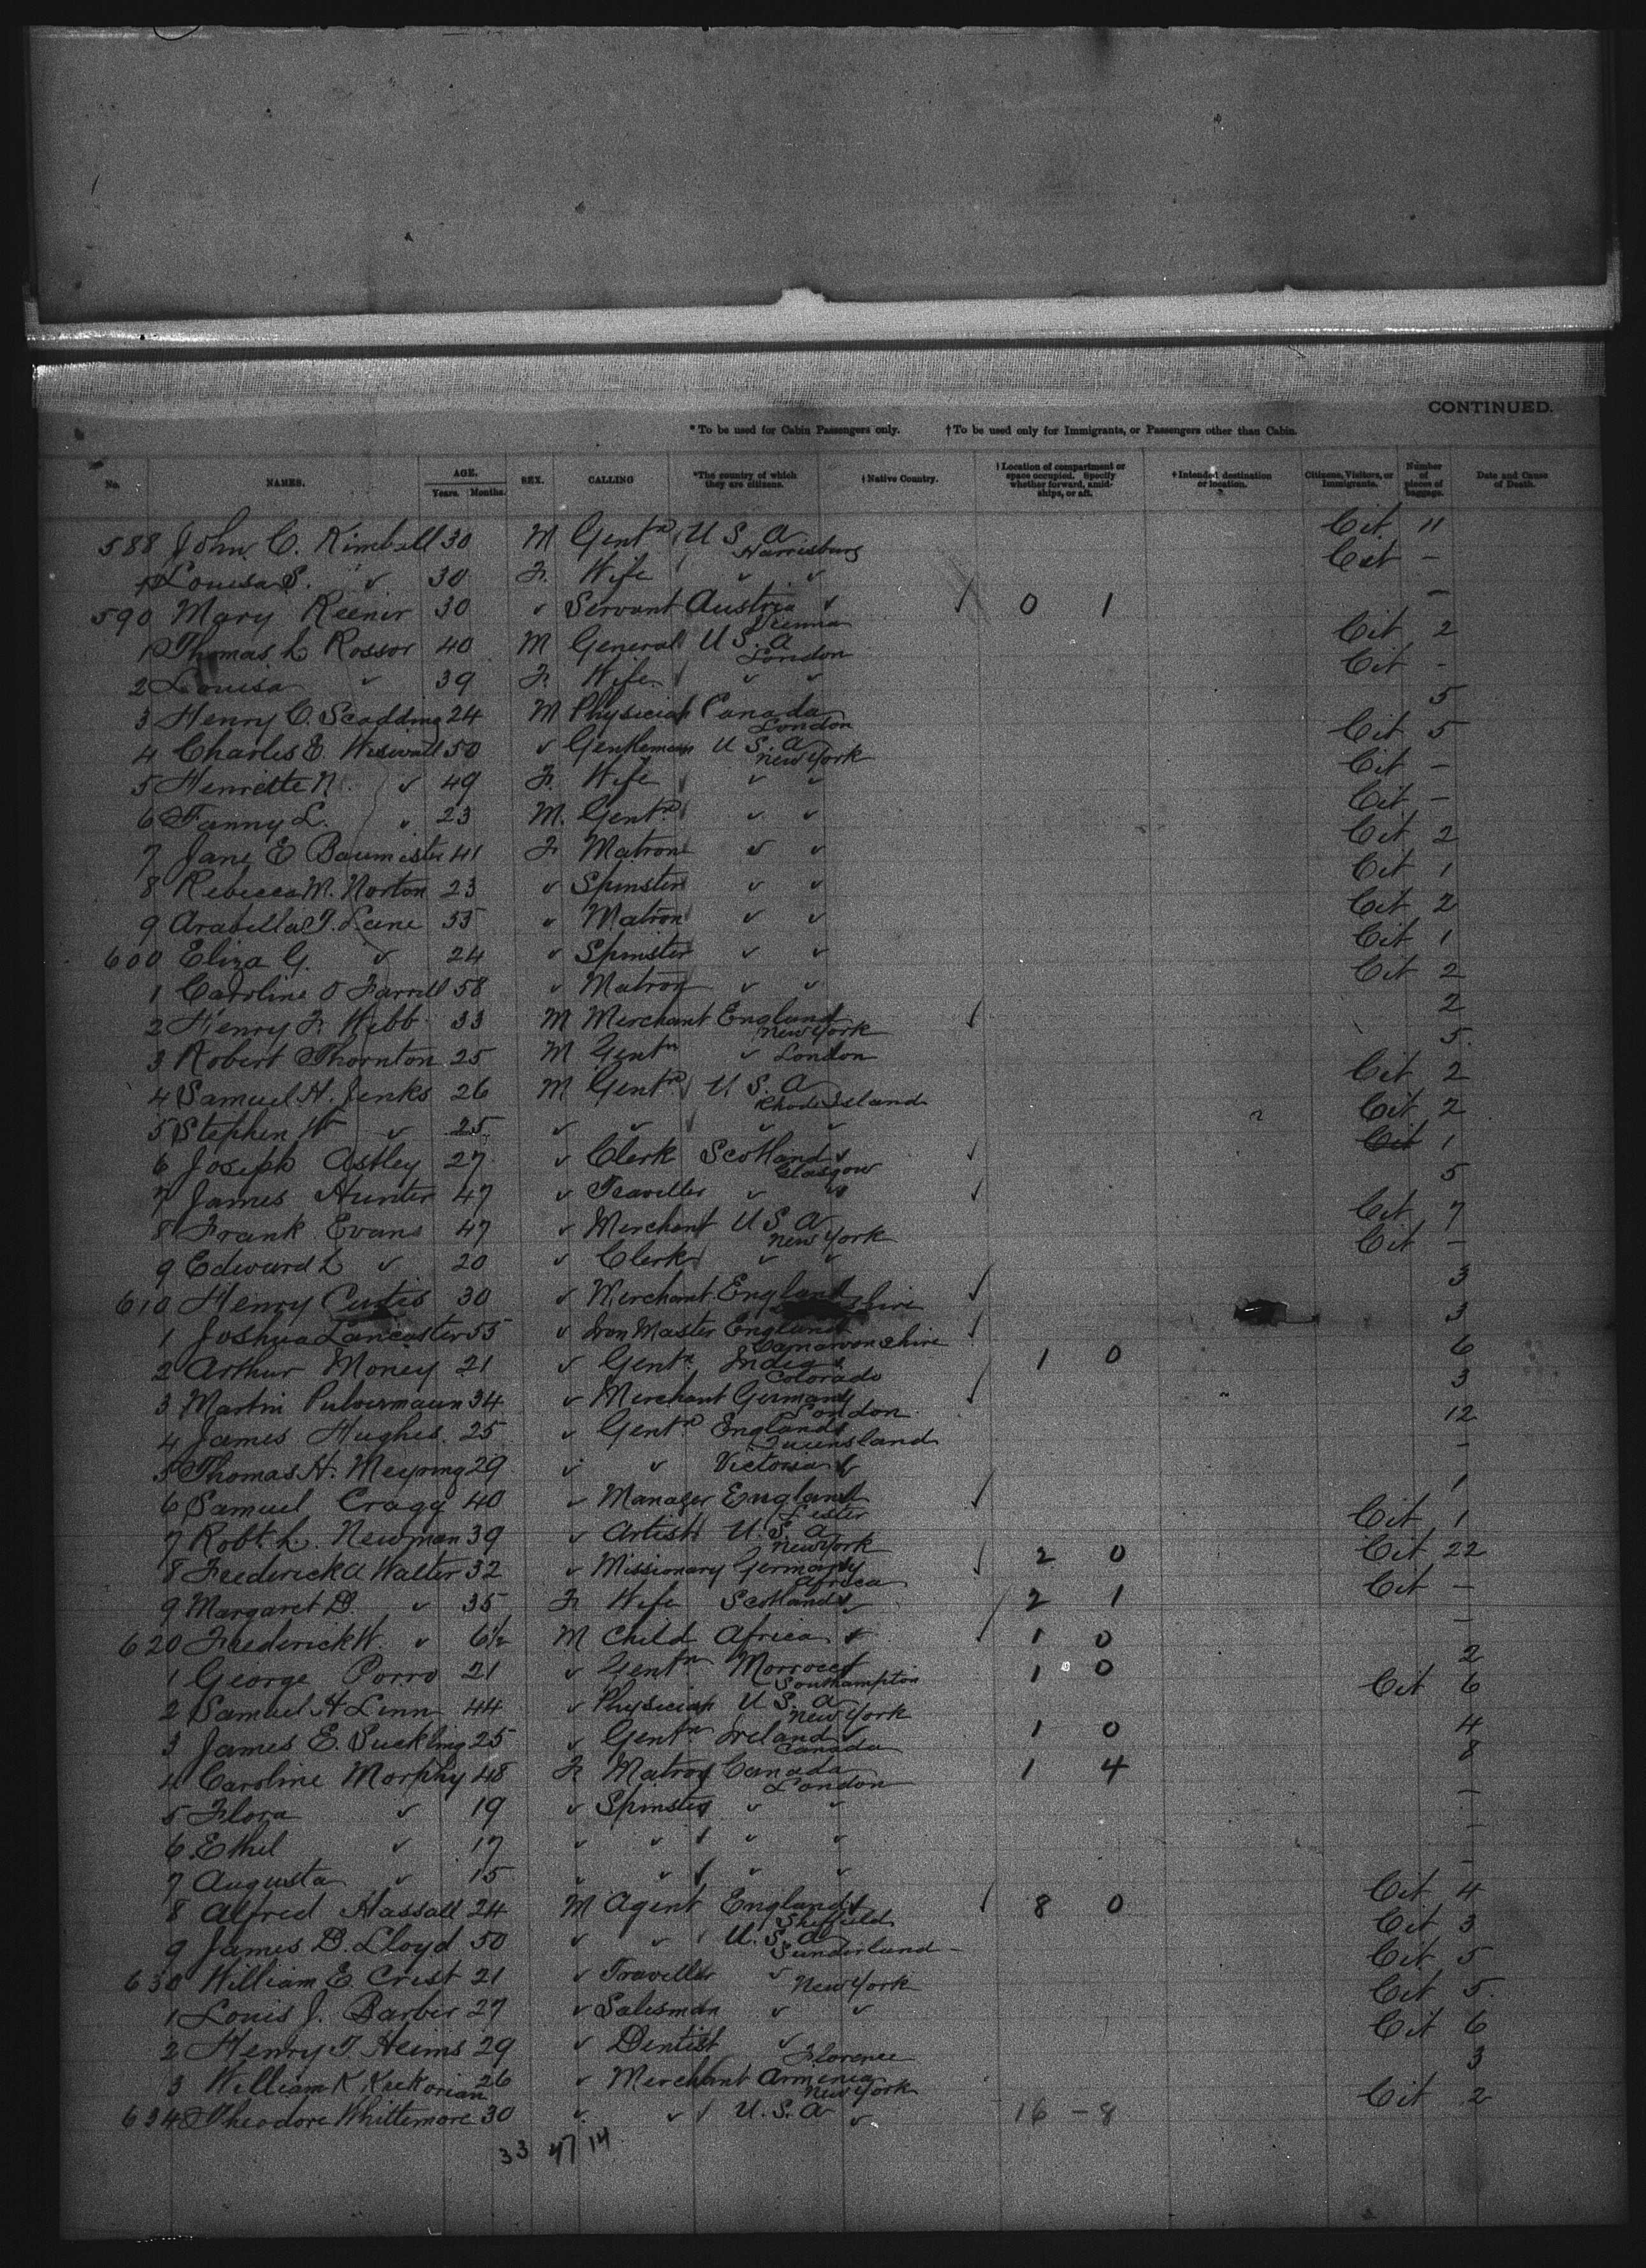 CONTINUED.
* To be used for Cabin Passengers only. † To be used only for Immigrants, or Passengers other than Cabin.
No. NAMES. AGE. Years. Months. SEX. CALLING *The country of which they are citizens. †Native Country. †Location of compartment or space occupied. Specify whether forward, amidships, or aft. †Intended destination or location. Citizens, Visitors, or Immigrants. Number of pieces of baggage. Date and Cause of Death.
588 John C. Kimball 30 M Gentn U S A Harrisburg Cit 11
Louisa S. 〃 30 F. Wife 〃 〃 Cit –
590 Mary Reenir 30 〃 Servant Austria Vienna 0 1 –
1 Thomas L Rossor 40 M General U S. A London Cit 2
2 Louisa 〃 39 F. Wife 〃 〃 Cit -
3 Henry C. Scadding 24 M Physician Canada London 5
4 Charles E. 50 〃 Gentleman U S. A New York Cit 5
5 Henriette N. 〃 49 F. Wife 〃 〃 Cit –
6 Fanny L. 〃 23 M. Gentn 〃 〃 Cit –
7 Jane E Baumister 41 F Matron 〃 〃 Cit 2
8 Rebecca M. Norton 23 〃 Spinster 〃 〃 Cit 1
9 Arabella T. Lane 55 〃 Matron 〃 〃 Cit 2
600 Eliza G. 〃 24 〃 Spinster 〃 〃 Cit 1
1 Caroline O Farrell 58 〃 Matron 〃 〃 Cit 2
2 Henry F. Webb 33 M Merchant England New York 2
3 Robert Thornton 25 M Gentn 〃 London 5.
4 Samuel H. Jenks 26 M Gentn U S. A Rhode Island Cit 2
5 Stephen W 〃 25 〃 〃 〃 〃 Cit 2
6 Joseph Astley 27 〃 Clerk Scotland Glasgow Cit 1
7 James Hunter 47 〃 Traveller 〃 〃 5
8 Frank Evans 47 〃 Merchant U S A New York Cit 7
9 Edward L 〃 20 〃 Clerk 〃 〃 Cit –
610 Henry Curtis 30 〃 Merchant England shire 3
1 Joshua Lancaster 55 〃 Iron Master England Carnarvonshire 3
2 Arthur Money 21 〃 Gentn India Colorado 1 0 6
3 Martin Pulvermaun 34 〃 Merchant Germany London 3
4 James Hughes. 25 〃 Gentn England Queensland 12
5 Thomas H. 29 〃 〃 Victoria –
6 Samuel Cragg 40 〃 Manager England Lester 1
7 Robt. L. Newman 39 〃 Artist U. S. A New York Cit 1
8 Frederick A Walter 32 〃 Missionary Germany Africa 2 0 Cit 22
9 Margaret B. 〃 35 F Wife Scotland 〃 2 1 Cit –
620 Frederick W. 〃 6½ M Child Africa 〃 1 0 –
1 George Porro 21 〃 Gentn Morrocco Southampton 1 0 2
2 Samuel A Linn 44 〃 Physician U S. A New York Cit 6
3 James E. Suckling 25 〃 Gentn Ireland Canada 1 0 4
4 Caroline Morphy 48 F Matron Canada London 1 4 8
5 Flora 〃 19 〃 Spinster 〃 〃 –
6 Ethel 〃 17 〃 〃 〃 〃 –
7 Augusta 〃 15 〃 〃 〃 〃 –
8 Alfred Hassall 24 M Agent England Sheffield 8 0 Cit 4
9 James B. Lloyd 50 〃 〃 U. S. A Sunderland Cit 3
630 William E. Crist 21 〃 Traveller 〃 New York Cit 5
1 Louis J. Barber 27 〃 Salesman 〃 〃 Cit 5.
2 Henry T. Heims 29 〃 Dentist 〃 Florence Cit 6
3 William K Krekorian 26 〃 Merchant Armenia New York 3
634 Theodore Whittemore 30 〃 〃 U. S. A 〃 16 – 8 Cit 2
33 47 14